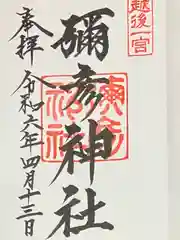 越後一宮
奉拝
彌彦神社
令和六年四月十三日